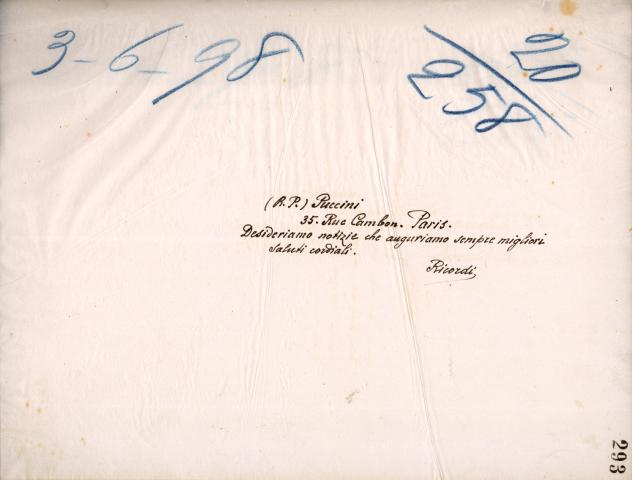 3-6-98
20
258
(R.P.) Puccini
35. Rue Cambon. Paris.
Desideriamo notizie che auguriamo sempre migliori
Saluti cordiali.
Ricordi
293